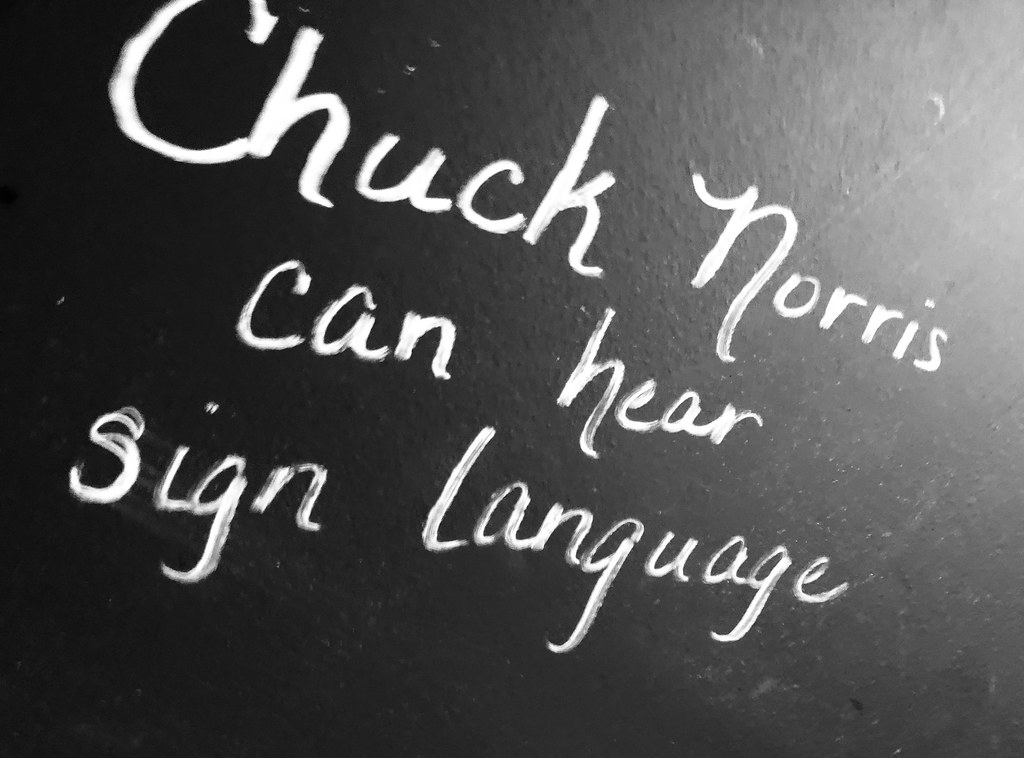 Chuck Norris
can hear
sign language